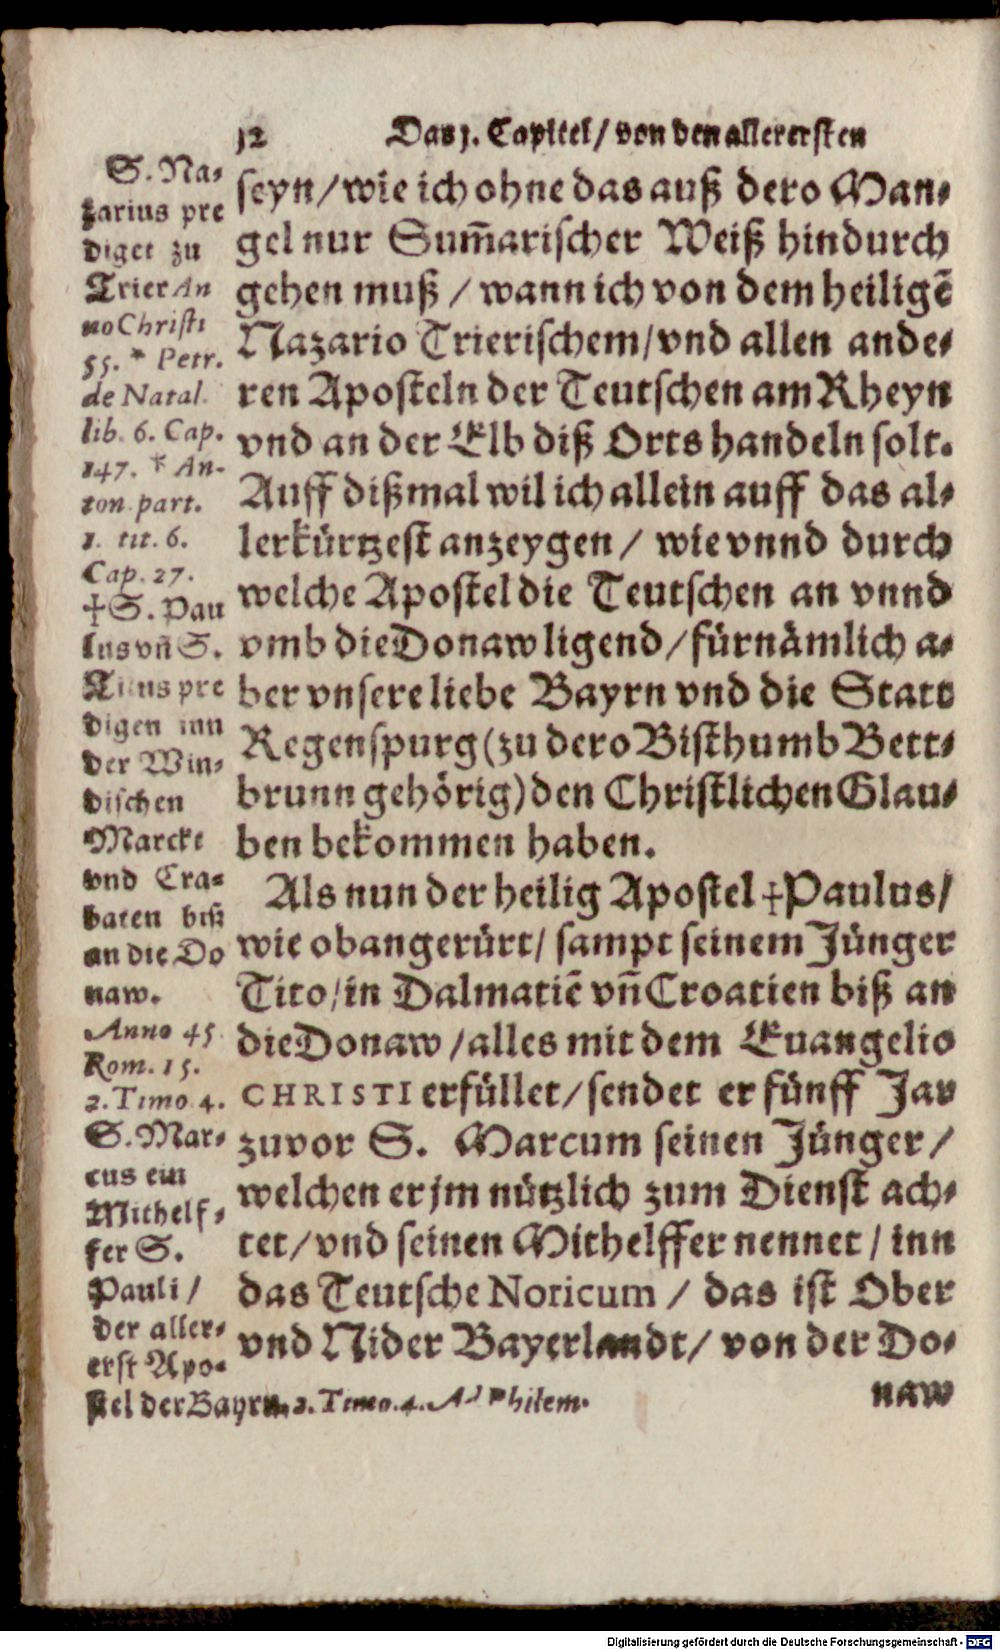 12 Das 1. Capitel / von den allerersten
S. Na-
zarius pre
diget zu
Trier An
no Christi
55. * Petr.
de Natal.
lib. 6. Cap.
147. * An-
ton. part.
1. tit. 6.
Cap. 27.
†S. Pau
lus vñ S.
Titus pre
digen inn
der Win-
dischen
Marckt
vnd Cra-
baten biß
an die Do
naw.
Anno 45.
Rom. 15.
2. Timo. 4.
S. Mar-
cus ein
Mithelf-
fer S.
Pauli /
der aller-
erst Apo-
stel der Bayrn. 2. Timo. 4. Ad Philem.
seyn / wie ich ohne das auß dero Man-
gel nur Sum̃arischer Weiß hindurch
gehen muß / wann ich von dem heiligẽ
Nazario Trierischem / vnd allen ande-
ren Aposteln der Teutschen am Rheyn
vnd an der Elb diß Orts handeln solt.
Auff dißmal wil ich allein auff das al-
lerkürtzest anzeygen / wie vnnd durch
welche Apostel die Teutschen an vnnd
vmb die Donaw ligend / fürnämlich a-
ber vnsere liebe Bayrn vnd die Statt
Regenspurg (zu dero Bisthumb Bett-
brunn gehörig) den Christlichen Glau-
ben bekommen haben.
Als nun der heilig Apostel †Paulus /
wie obangerürt / sampt seinem Jünger
Tito / in Dalmatiẽ vñ Croatien biß an
die Donaw / alles mit dem Euangelio
CHRISTI erfüllet / sendet er fünff Jar
zuvor S. Marcum seinen Jünger /
welchen er jm nützlich zum Dienst ach-
tet / vnd seinen Mithelffer nennet / inn
das Teutsche Noricum / das ist Ober
vnd Nider Bayerlandt / von der Do-
naw
Digitalisierung gefördert durch die Deutsche Forschungsgemeinschaft - DFG